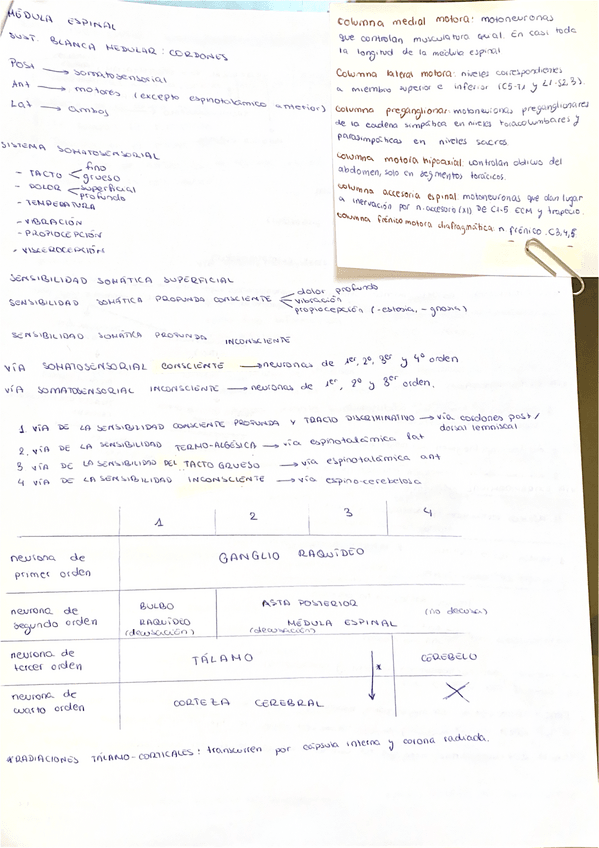 MÉDULA ESPINAL
SUST. BLANCA MEDULAR: CORDONES
Post → somatosensorial
Ant → motores (excepto espinotalámico anterior)
Lat → ambos
SISTEMA SOMATOSENSORIAL
- TACTO < fino
grueso
- DOLOR < superficial
profundo
- TEMPERATURA
- VIBRACIÓN
- PROPIOCEPCIÓN
- VISCEROCEPCIÓN
columna medial motora: motoneuronas
que controlan musculatura axial. En casi toda
la longitud de la médula espinal
Columna lateral motora: niveles correspondientes
a miembro superior e inferior (C5-T1 y L1-S2,3).
columna preganglionar: motoneuronas preganglionares
de la cadena simpática en niveles toracolumbares y
parasimpáticas en niveles sacros
columna motora hipoaxial: controlan oblicuo del
abdomen, solo en segmentos torácicos.
columna accesoria espinal: motoneuronas que dan lugar
a inervación por n. accesorio (XI) DE C1-5 ECM y trapecio.
columna frénico motora diafragmática: n frénico. C3,4,5
SENSIBILIDAD SOMÁTICA SUPERFICIAL
SENSIBILIDAD SOMÁTICA PROFUNDA CONSCIENTE < dolor profundo
vibración
propiocepción (-estesia, -gnosia)
SENSIBILIDAD SOMÁTICA PROFUNDA INCONSCIENTE
VÍA SOMATOSENSORIAL CONSCIENTE → neuronas de 1er, 2º, 3er y 4º orden
VÍA SOMATOSENSORIAL INCONSCIENTE → neuronas de 1er, 2º y 3er orden.
1 VÍA DE LA SENSIBILIDAD CONSCIENTE PROFUNDA Y TRACTO DISCRIMINATIVO → vía cordones post/
dorsal lemniscal
2. VÍA DE LA SENSIBILIDAD TERMO-ALGÉSICA → vía espinotalámica lat
3 VÍA DE LA SENSIBILIDAD DEL TACTO GRUESO → vía espinotalámica ant
4 VÍA DE LA SENSIBILIDAD INCONSCIENTE → vía espino-cerebelosa
1 2 3 4
neurona de
primer orden
GANGLIO RAQUÍDEO
neurona de
segundo orden
BULBO
RAQUÍDEO
(decusación)
ASTA POSTERIOR
MÉDULA ESPINAL
(decusación)
(no decusa)
neurona de
tercer orden
TÁLAMO
*
CEREBELO
neurona de
cuarto orden
CORTEZA CEREBRAL
X
*RADIACIONES TÁLAMO-CORTICALES: transcurren por cápsula interna y corona radiada.